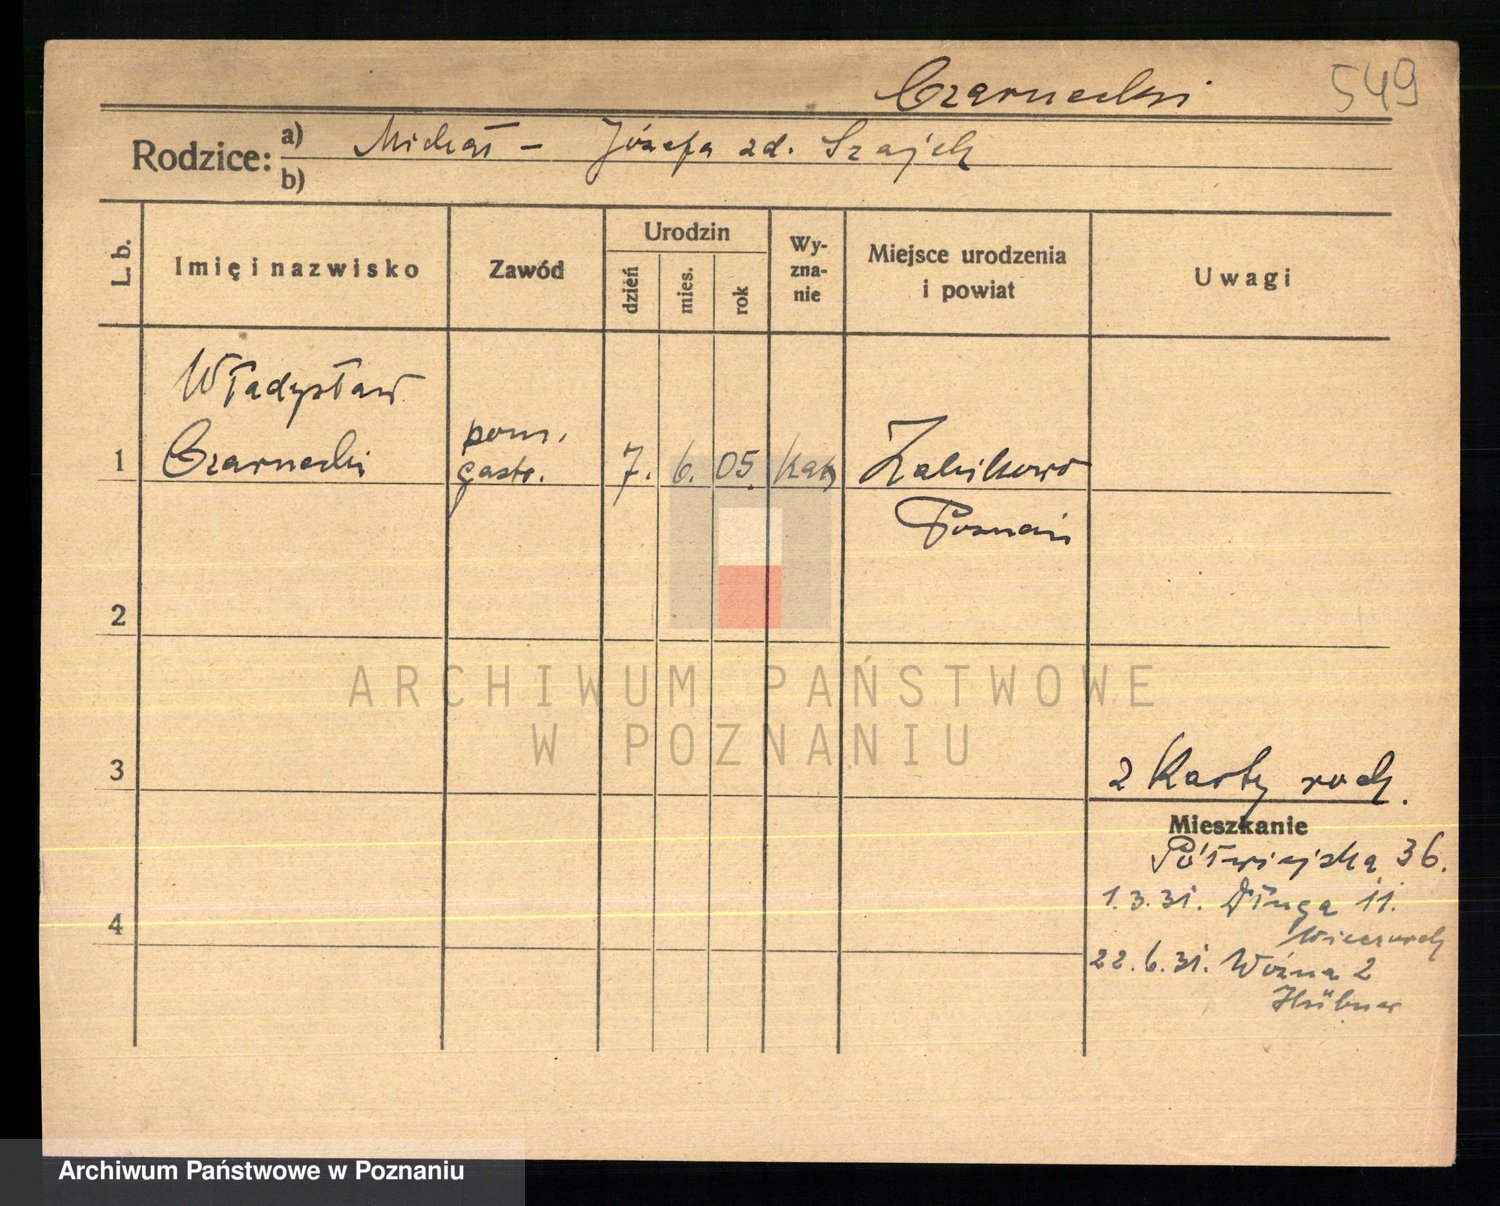 Czarnecki 549
Rodzice: a) Michał – Józefa zd. Szajek
b)
L. b.
Imię i nazwisko
Zawód
Urodzin
dzień
mies.
rok
Wy-
zna-
nie
Miejsce urodzenia
i powiat
Uwagi
Władysław
1 Czarnecki
pom.
gastr.
7. 6. 05. kat
Żabikowo
Poznań
2
ARCHIWUM PAŃSTWOWE
W POZNANIU
3
2 Karty rodz.
Mieszkanie
Półwiejska 36.
1.3.31. Długa 11.
4
22.6.31. Woźna 2
Hübner
Archiwum Państwowe w Poznaniu